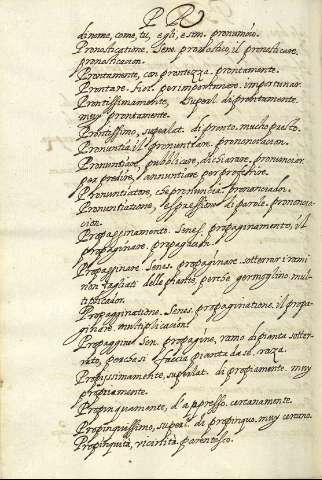 P R
di nome, come, tu, egli, e sim. pronumbri.
Pronosticatione. Sen. pronostico, il pronosticare.
pronosticacion.
Prontamente, con prontezza. prontamente.
Prontare. Fior. per importunare. importunar.
Prontissimamente, Superl. di prontamente.
muy prontamente.
Prontissimo, superlat. di pronto. mucho presto.
Pronuntia, il pronuntiare. pronunciacion.
Pronuntiare, publicare, dichiarare, pronunciar.
per predire, annuntiare, per proferire.
Pronuntiatore, che pronuntia. pronunciador.
Pronuntiatione, espressione di parole. pronuncia-
cion.
Propagginamento. Senes. propaginamento, il
propaginare. propagacion.
Propagginare. Senes. propaginare, sotterrar i rami
non tagliati delle piante, perche germoglino. mul-
tiplicador.
Propagginatione. Senes. propaginatione. il propa-
ginare. multiplicacion.
Propaggine Sen. propagine, ramo di pianta sotter-
rato, perche si faccia pianta da se. raza.
Propissimamente, superlat. di propiamente. muy
propriamente.
Propinquamente, d'appresso. cercanamente.
Propinquissimo, superl. di propinquo. muy cercano.
Propinquità, vicinità. parentesco.